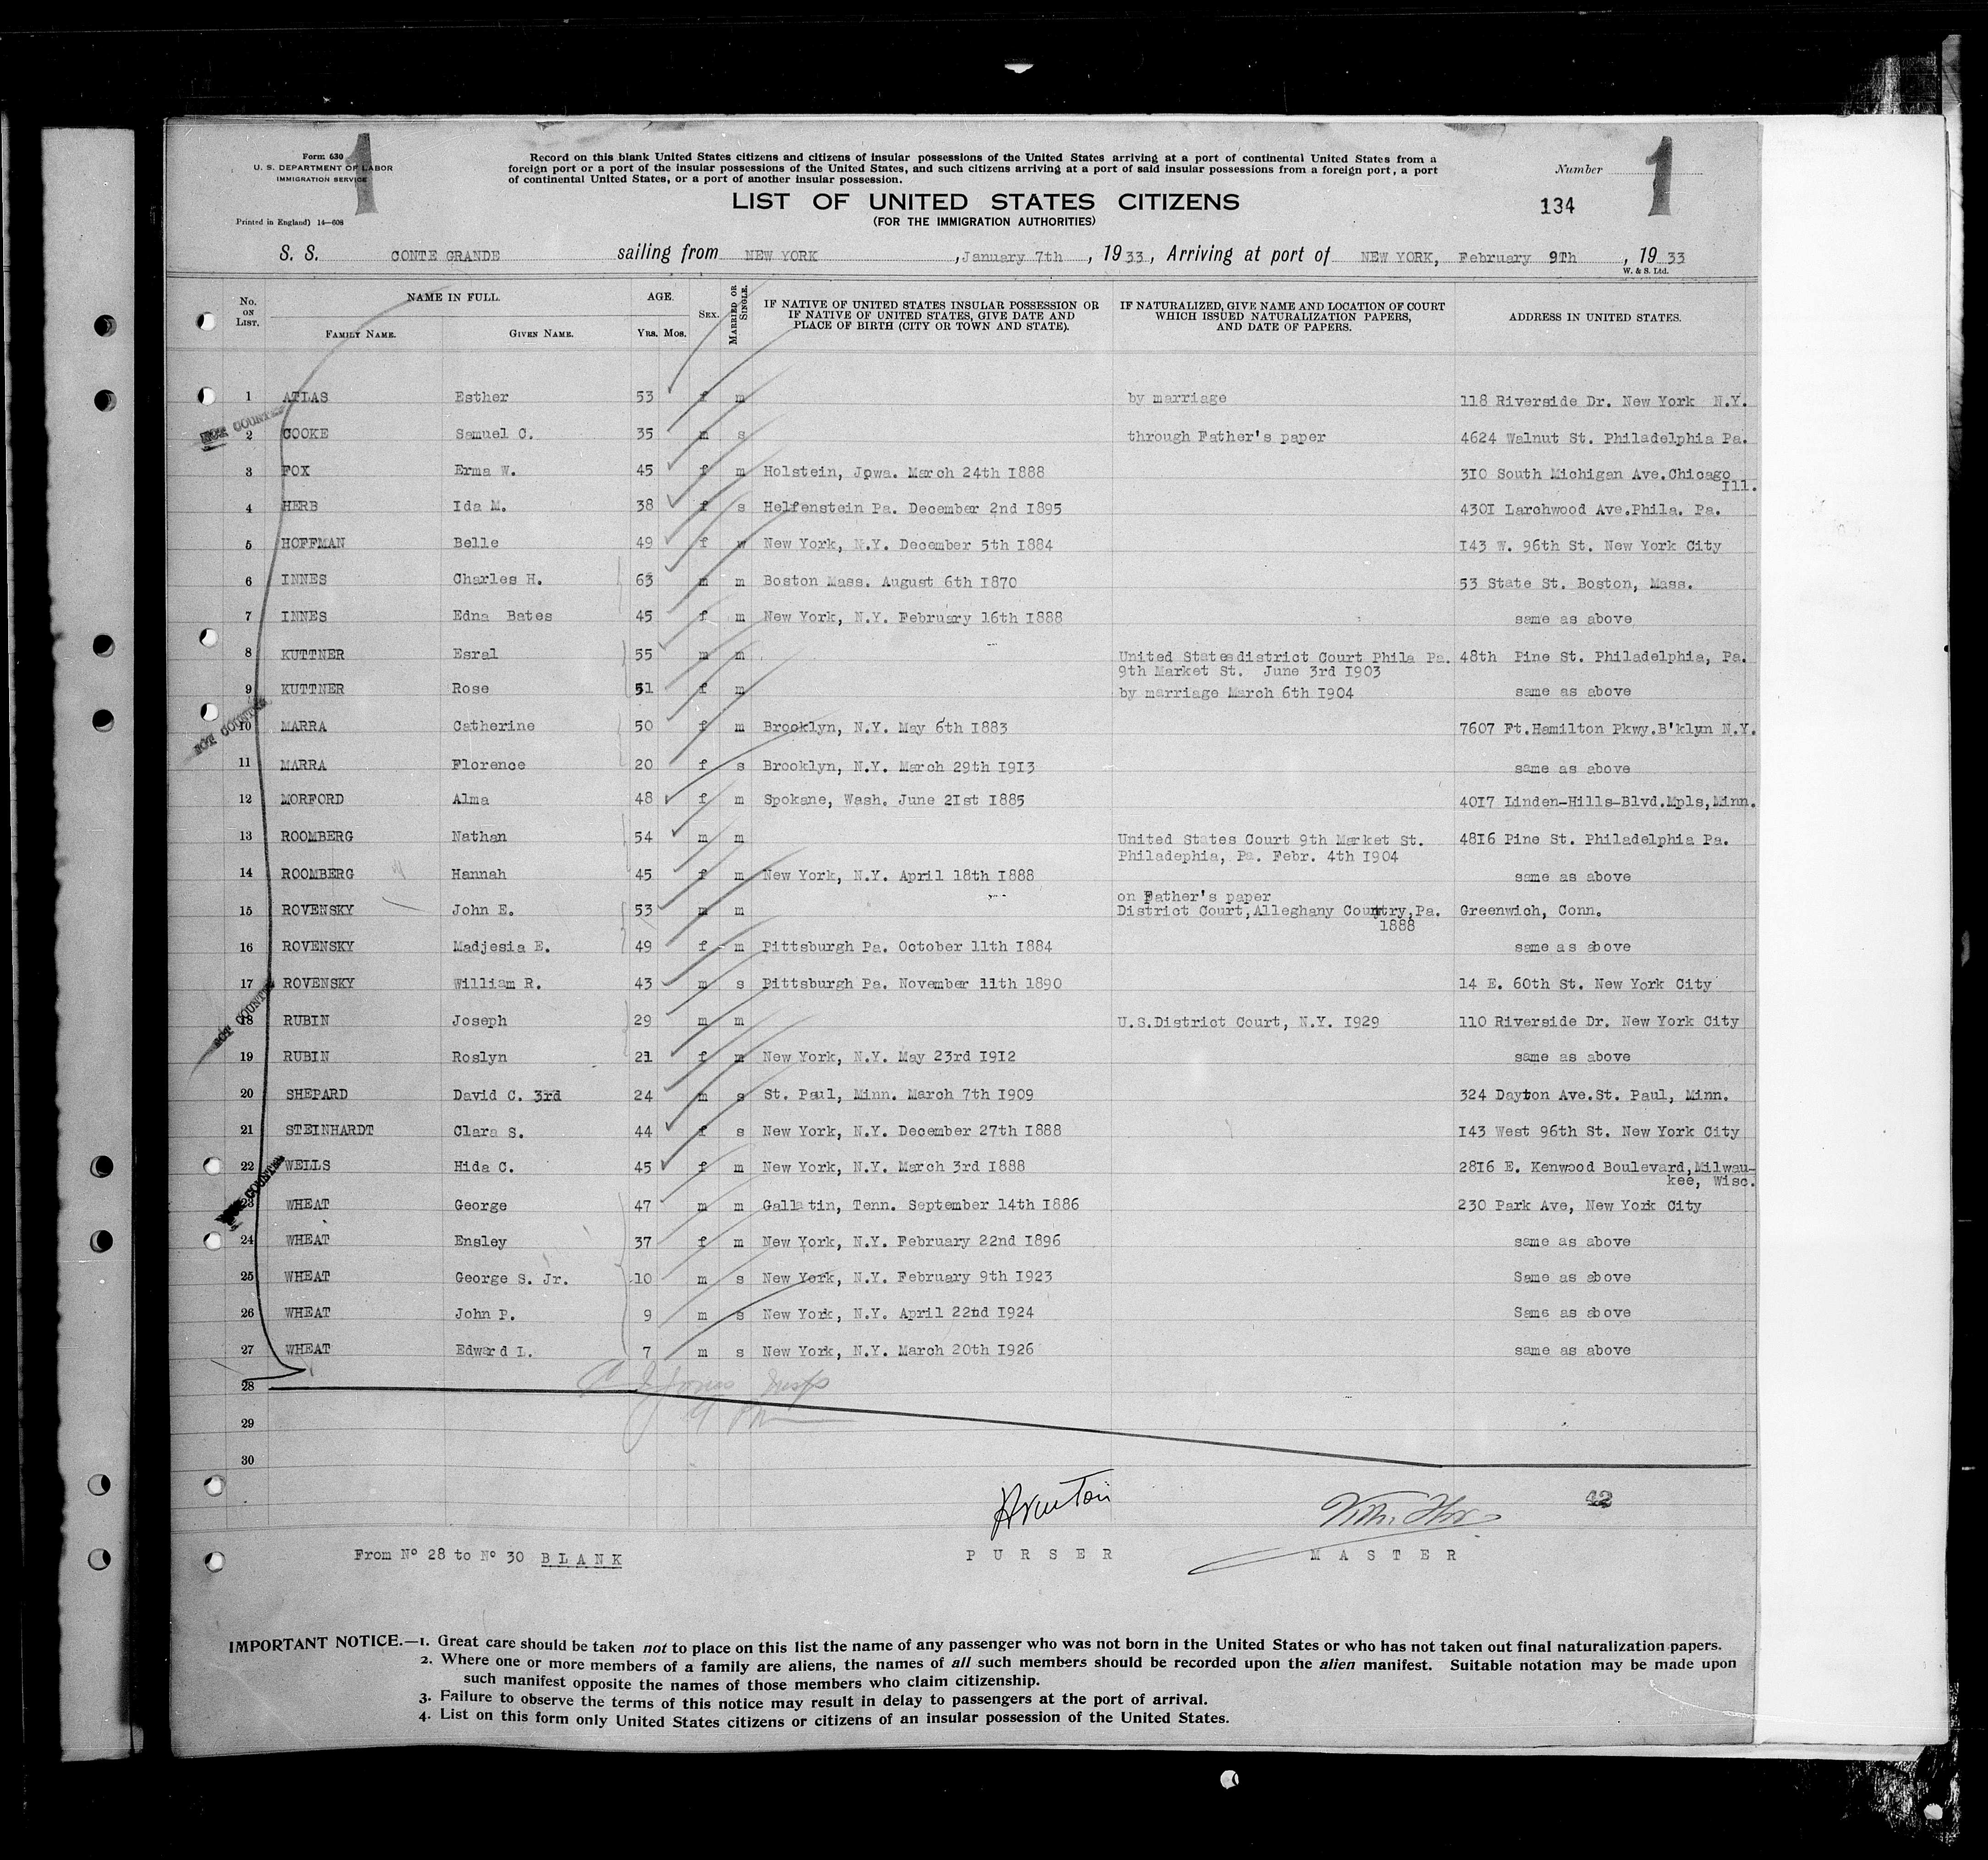 Form 630
U. S. DEPARTMENT OF LABOR
IMMIGRATION SERVICE
Printed in England) 14—608
1
Record on this blank United States citizens and citizens of insular possessions of the United States arriving at a port of continental United States from a
foreign port or a port of the insular possessions of the United States, and such citizens arriving at a port of said insular possessions from a foreign port, a port
of continental United States, or a port of another insular possession.
Number
1
LIST OF UNITED STATES CITIZENS
(FOR THE IMMIGRATION AUTHORITIES)
134
S. S. CONTE GRANDE sailing from NEW YORK ,January 7th , 1933, Arriving at port of NEW YORK, February 9Th , 1933
W. & S. Ltd.
No. ON LIST. NAME IN FULL. FAMILY NAME. GIVEN NAME. AGE. YRS. MOS. SEX. MARRIED OR SINGLE. IF NATIVE OF UNITED STATES INSULAR POSSESSION OR IF NATIVE OF UNITED STATES, GIVE DATE AND PLACE OF BIRTH (CITY OR TOWN AND STATE). IF NATURALIZED, GIVE NAME AND LOCATION OF COURT WHICH ISSUED NATURALIZATION PAPERS, AND DATE OF PAPERS. ADDRESS IN UNITED STATES.
1 ATLAS Esther 53 f m by marriage 118 Riverside Dr. New York N.Y.
NOT COUNTED
2 COOKE Samuel C. 35 m s through Father's paper 4624 Walnut St. Philadelphia Pa.
3 FOX Erma W. 45 f m Holstein, Jowa. March 24th 1888 310 South Michigan Ave.Chicago
Ill.
4 HERB Ida M. 38 f s Helfenstein Pa. December 2nd 1895 4301 Larchwood Ave.Phila. Pa.
5 HOFFMAN Belle 49 f w New York, N.Y. December 5th 1884 143 W. 96th St. New York City
6 INNES Charles H. 63 m m Boston Mass. August 6th 1870 53 State St. Boston, Mass.
7 INNES Edna Bates 45 f m New York, N.Y. February 16th 1888 same as above
8 KUTTNER Esral 55 m m United States district Court Phila Pa. 48th Pine St. Philadelphia, Pa.
9th Market St. June 3rd 1903
9 KUTTNER Rose 51 f m by marriage March 6th 1904 same as above
NOT COUNTED
10 MARRA Catherine 50 f m Brooklyn, N.Y. May 6th 1883 7607 Ft.Hamilton Pkwy.B'klyn N.Y.
11 MARRA Florence 20 f s Brooklyn, N.Y. March 29th 1913 same as above
12 MORFORD Alma 48 f m Spokane, Wash. June 21st 1885 4017 Linden-Hills-Blvd.Mpls,Minn.
13 ROOMBERG Nathan 54 m m United States Court 9th Market St. 4816 Pine St. Philadelphia Pa.
Philadephia, Pa. Febr. 4th 1904
14 ROOMBERG Hannah 45 f m New York, N.Y. April 18th 1888 same as above
on Father's paper
15 ROVENSKY John E. 53 m m District Court,Alleghany Country,Pa. Greenwich, Conn.
1888
16 ROVENSKY Madjesia E. 49 f m Pittsburgh Pa. October 11th 1884 same as above
17 ROVENSKY William R. 43 m s Pittsburgh Pa. November 11th 1890 14 E. 60th St. New York City
NOT COUNTED
18 RUBIN Joseph 29 m m U.S.District Court, N.Y. 1929 110 Riverside Dr. New York City
19 RUBIN Roslyn 21 f m New York, N.Y. May 23rd 1912 same as above
20 SHEPARD David C. 3rd 24 m s St. Paul, Minn. March 7th 1909 324 Dayton Ave.St. Paul, Minn.
21 STEINHARDT Clara S. 44 f s New York, N.Y. December 27th 1888 143 West 96th St. New York City
22 WELLS Hida C. 45 f m New York, N.Y. March 3rd 1888 2816 E. Kenwood Boulevard,Milwau-
kee, Wisc.
NOT COUNTED
23 WHEAT George 47 m m Gallatin, Tenn. September 14th 1886 230 Park Ave, New York City
24 WHEAT Ensley 37 f m New York, N.Y. February 22nd 1896 same as above
25 WHEAT George S. Jr. 10 m s New York, N.Y. February 9th 1923 Same as above
26 WHEAT John P. 9 m s New York, N.Y. April 22nd 1924 Same as above
27 WHEAT Edward L. 7 m s New York, N.Y. March 20th 1926 same as above
28
29
30
42
From Nº 28 to Nº 30 BLANK PURSER MASTER
IMPORTANT NOTICE.—1. Great care should be taken not to place on this list the name of any passenger who was not born in the United States or who has not taken out final naturalization papers.
2. Where one or more members of a family are aliens, the names of all such members should be recorded upon the alien manifest. Suitable notation may be made upon
such manifest opposite the names of those members who claim citizenship.
3. Failure to observe the terms of this notice may result in delay to passengers at the port of arrival.
4. List on this form only United States citizens or citizens of an insular possession of the United States.